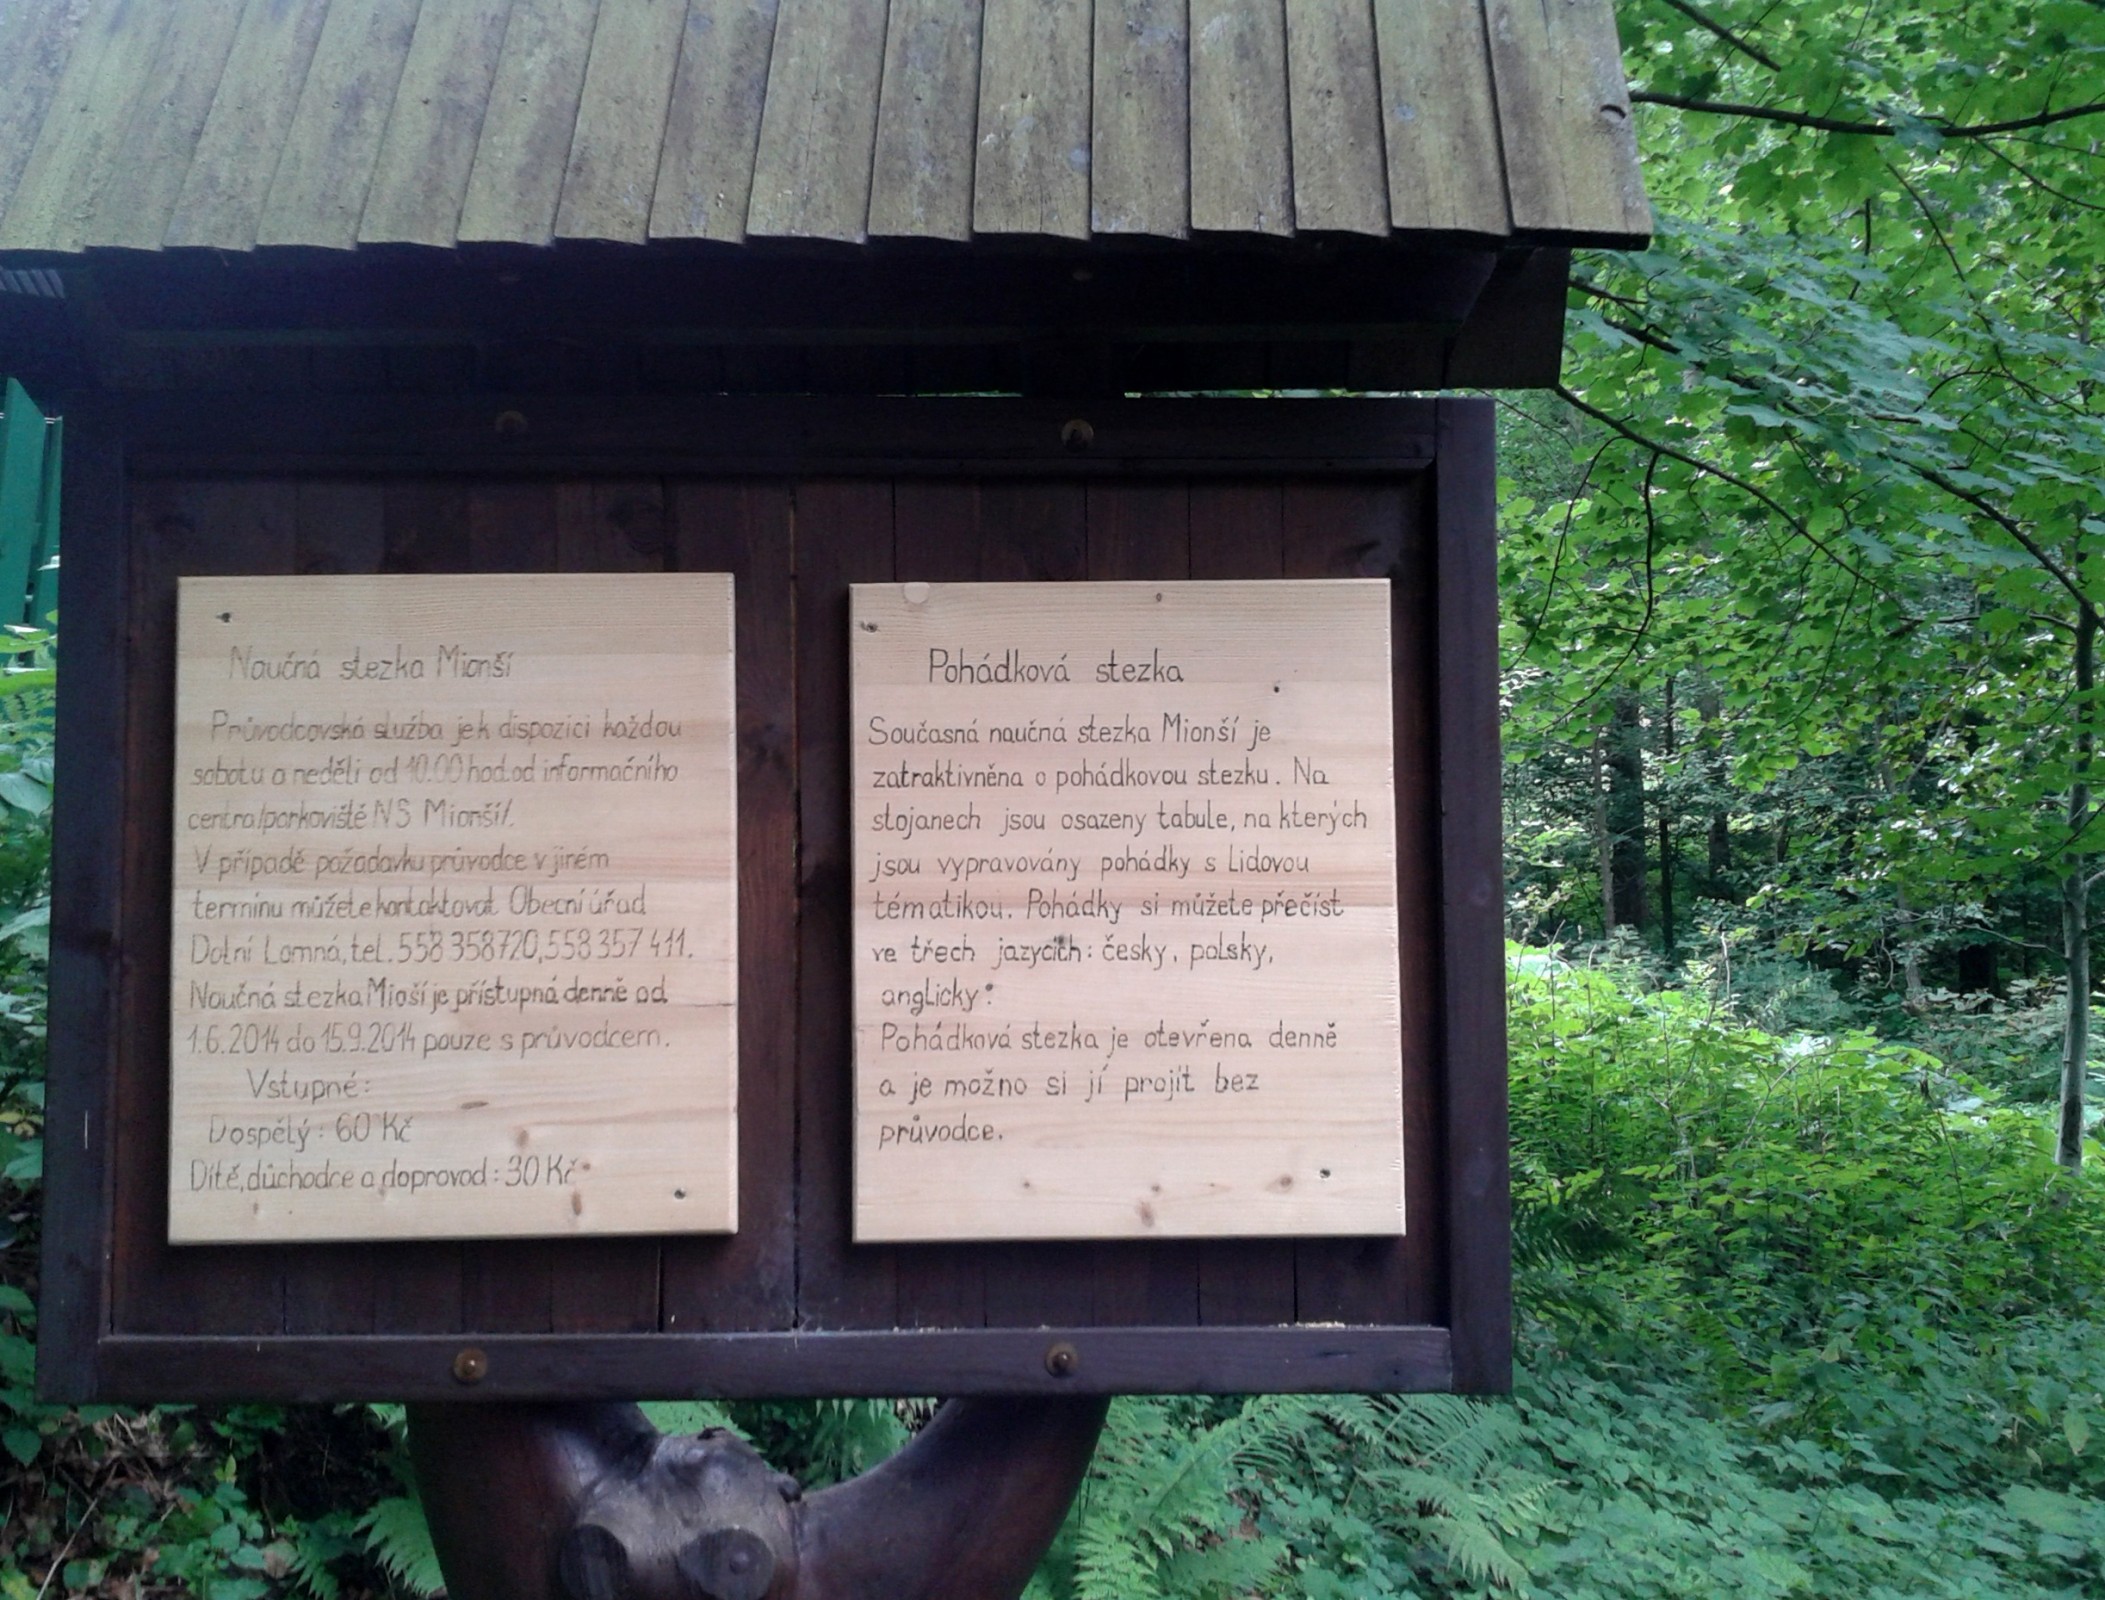 Naučná stezka Mionší
Průvodcovská služba je k dispozici každou
sobotu a neděli od 10.00 hod. od informačního
centra/parkoviště NS Mionší/.
V případě požadavku průvodce v jiném
termínu můžete kontaktovat Obecní úřad
Dolní Lomná, tel. 558 358 720, 558 357 411.
Naučná stezka Mioší je přístupná denně od
1.6.2014 do 15.9.2014 pouze s průvodcem.
Vstupné:
Dospělý: 60 Kč
Dítě, důchodce a doprovod: 30 Kč
Pohádková stezka
Současná naučná stezka Mionší je
zatraktivněna o pohádkovou stezku. Na
stojanech jsou osazeny tabule, na kterých
jsou vypravovány pohádky s lidovou
tématikou. Pohádky si můžete přečíst
ve třech jazycích: česky, polsky,
anglicky.
Pohádková stezka je otevřena denně
a je možno si jí projít bez
průvodce.